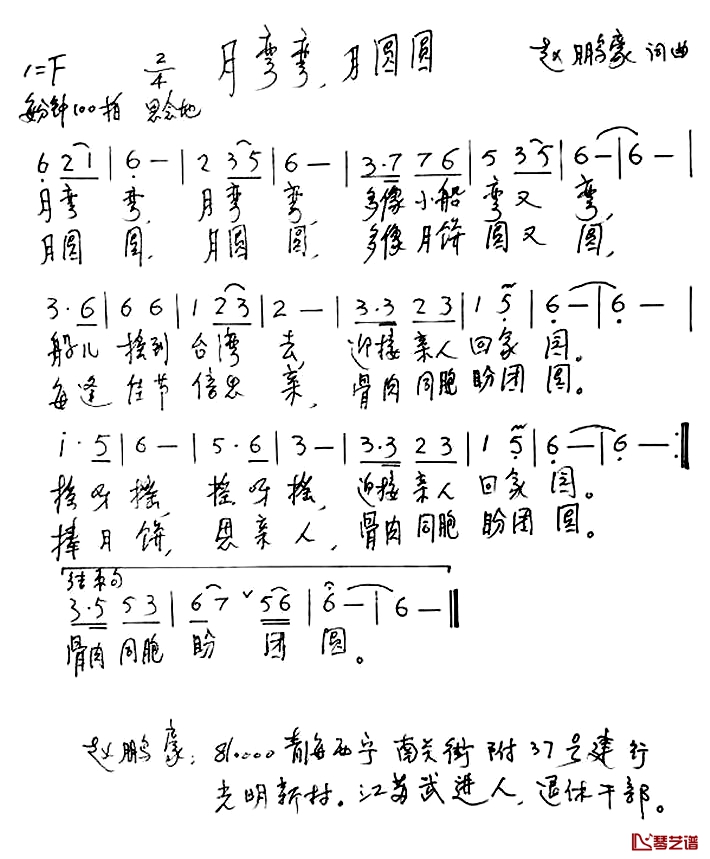 1=F 2/4 月弯弯，月圆圆 赵鹏豪 词曲
每分钟100拍 思念地
6 2 1 | 6 — | 2 3 5 | 6 — | 3·7 7 6 | 5 3 5 | 6 — | 6 — |
月弯 弯，月弯 弯，多像小船 弯又 弯，
月圆 圆，月圆 圆，多像月饼 圆又 圆，
3·6 | 6 6 | 1 2 3 | 2 — | 3·3 2 3 | 1 5 | 6 — | 6 — |
船儿 摇到 台湾 去，迎接亲人 回家 园。
每逢 佳节 倍思 亲，骨肉同胞 盼团 圆。
i·5 | 6 — | 5·6 | 3 — | 3·3 2 3 | 1 5 | 6 — | 6 — :‖
摇呀 摇，摇呀 摇，迎接亲人 回家 园。
捧月 饼，思亲 人，骨肉同胞 盼团 圆。
结束句
3·5 5 3 | 6 7 ˅ 5 6 | 6 — | 6 — ‖
骨肉同胞 盼 团 圆。
赵鹏豪：810000 青海西宁 南关街 附37号建行
光明新村。江苏武进人，退休干部。
琴艺谱